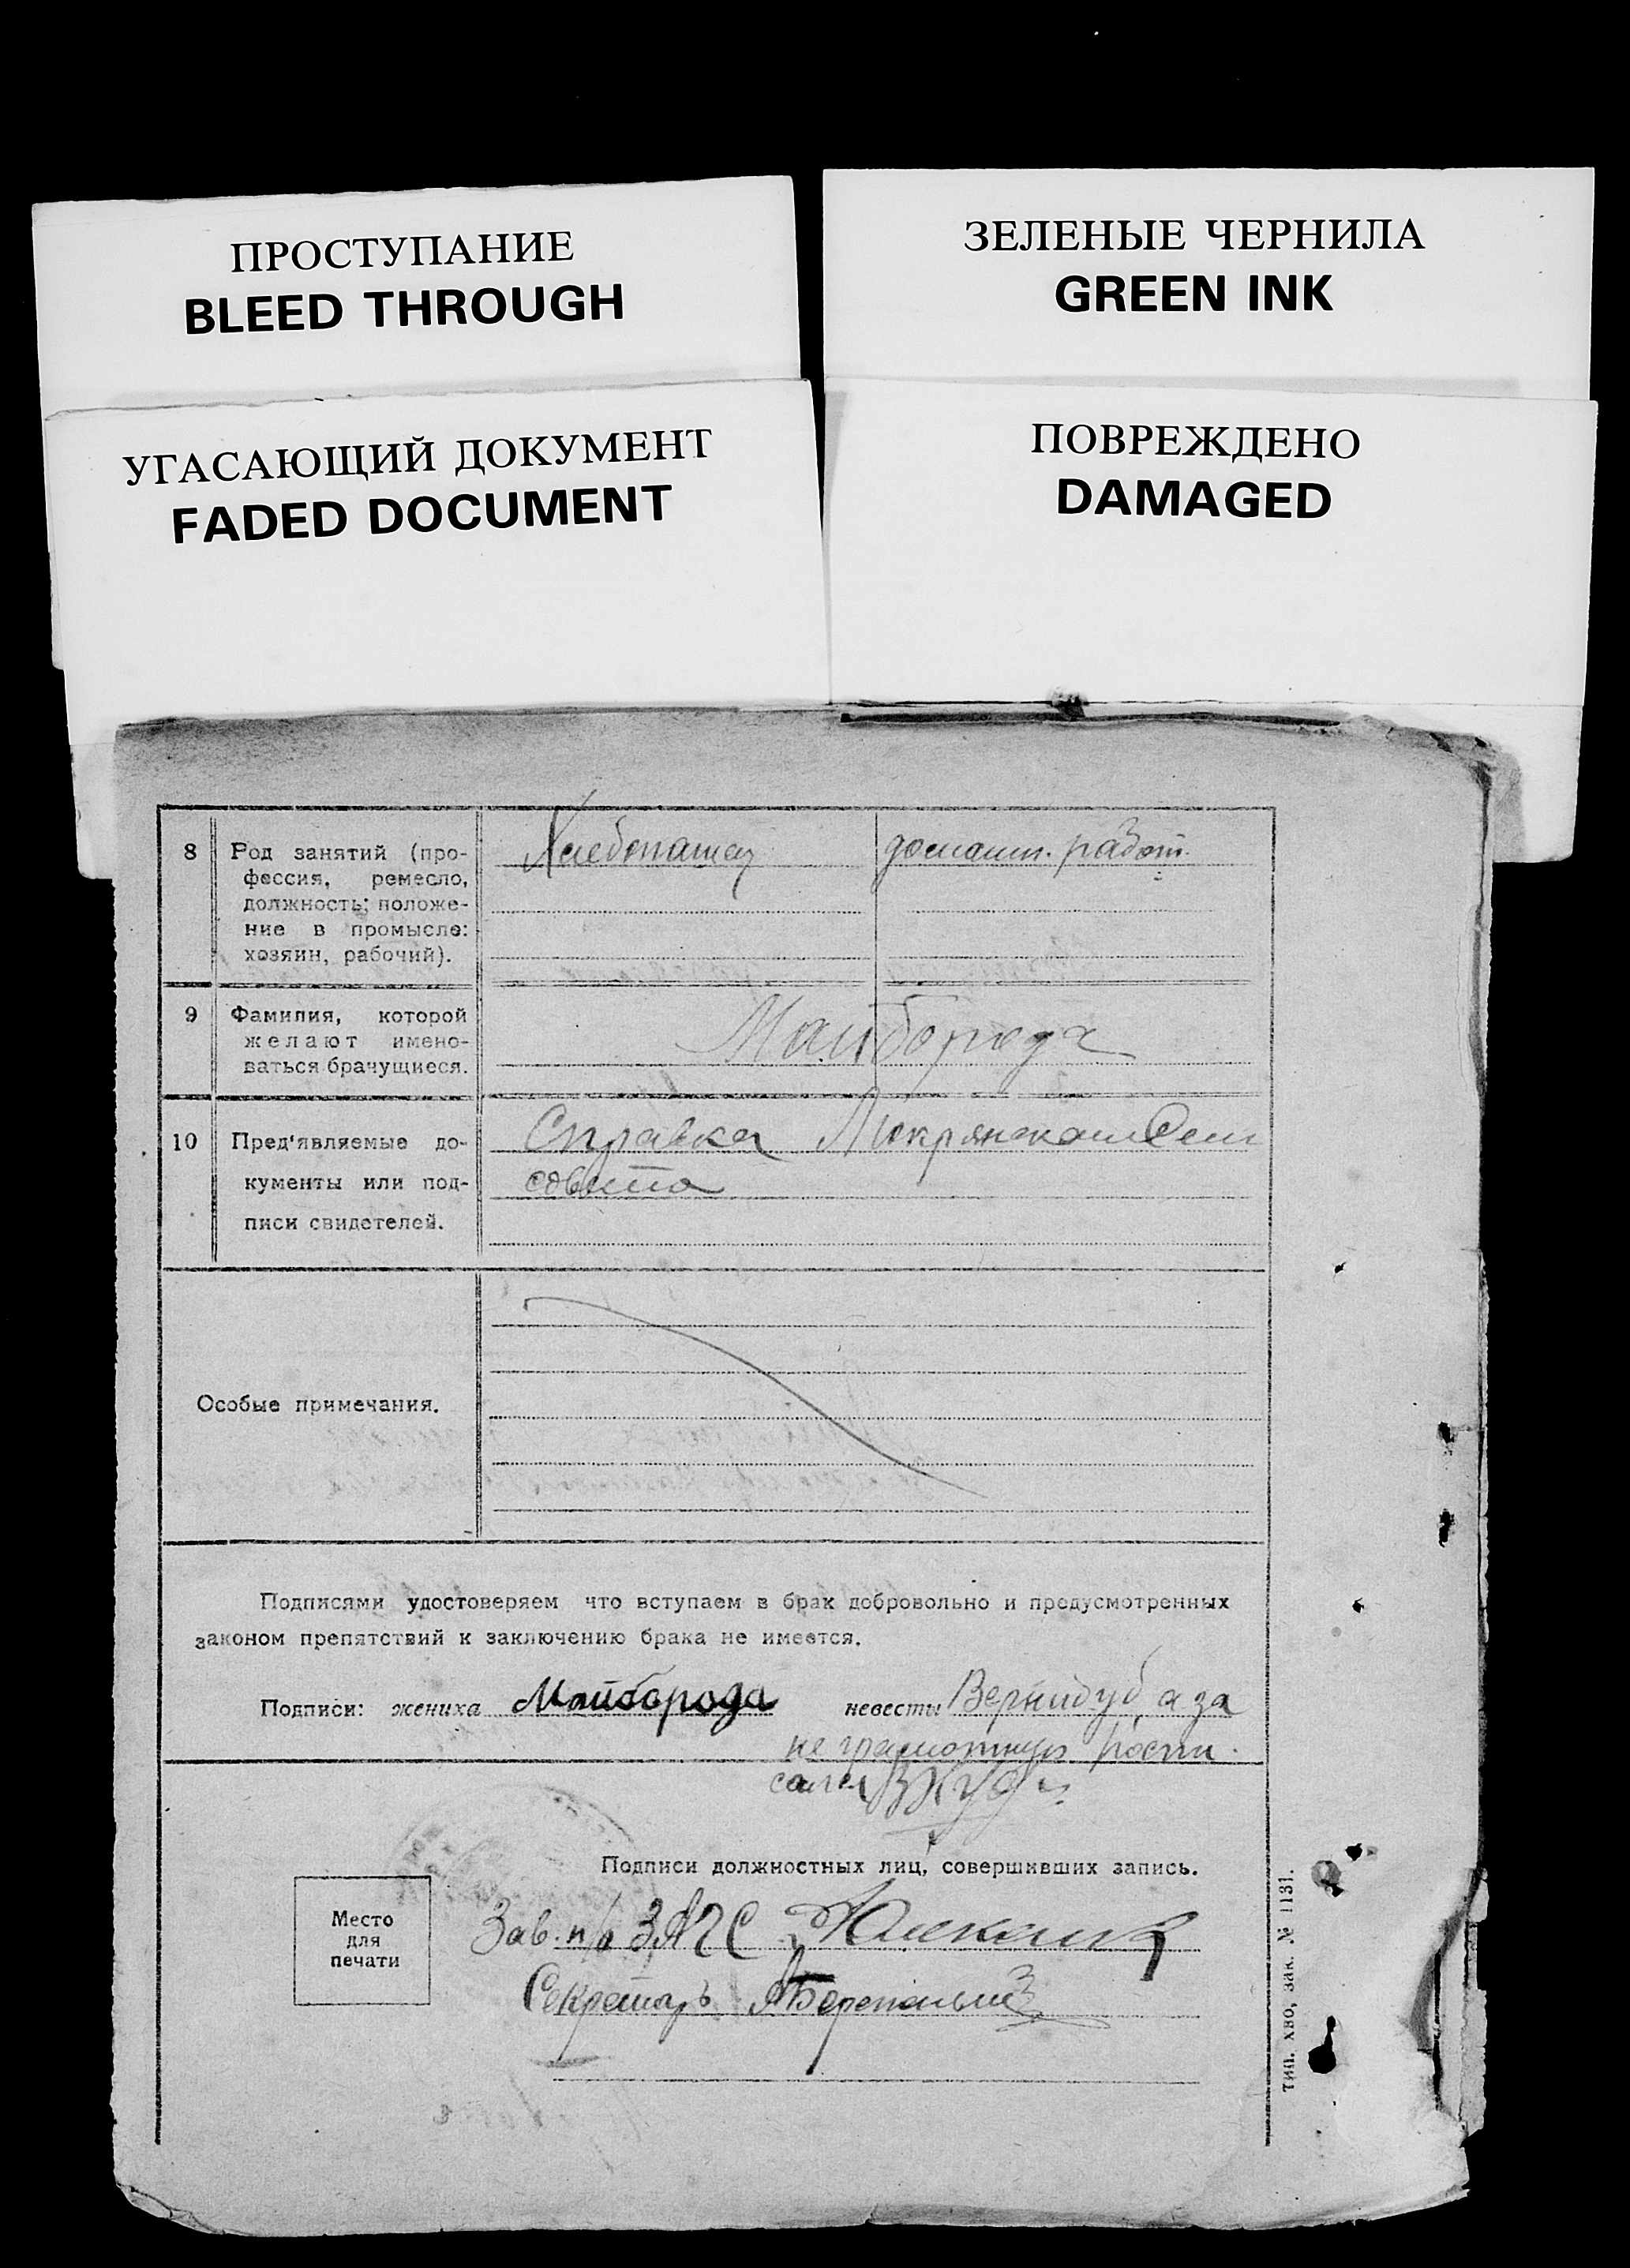 ПРОСТУПАНИЕ
BLEED THROUGH
ЗЕЛЕНЫЕ ЧЕРНИЛА
GREEN INK
УГАСАЮЩИЙ ДОКУМЕНТ
FADED DOCUMENT
ПОВРЕЖДЕНО
DAMAGED
8 Род занятий (про-
фессия, ремесло,
должность; положе-
ние в промысле:
хозяин, рабочий).
Хлебопашец
домашн. работ.
9 Фамилия, которой
желают имено-
ваться брачущиеся.
Майборода
10 Пред'являемые до-
кументы или под-
писи свидетелей.
Справка
совета
Особые примечания.
Подписями удостоверяем что вступаем в брак добровольно и предусмотренных
законом препятствий к заключению брака не имеется.
Подписи: жениха Майборода невесты Вернидуб, а за
не грамотную росп.
Подписи должностных лиц, совершивших запись.
Место
для
печати
Зав. п/о ЗАГС
Секретарь
тип. хво, зак. № 1131.